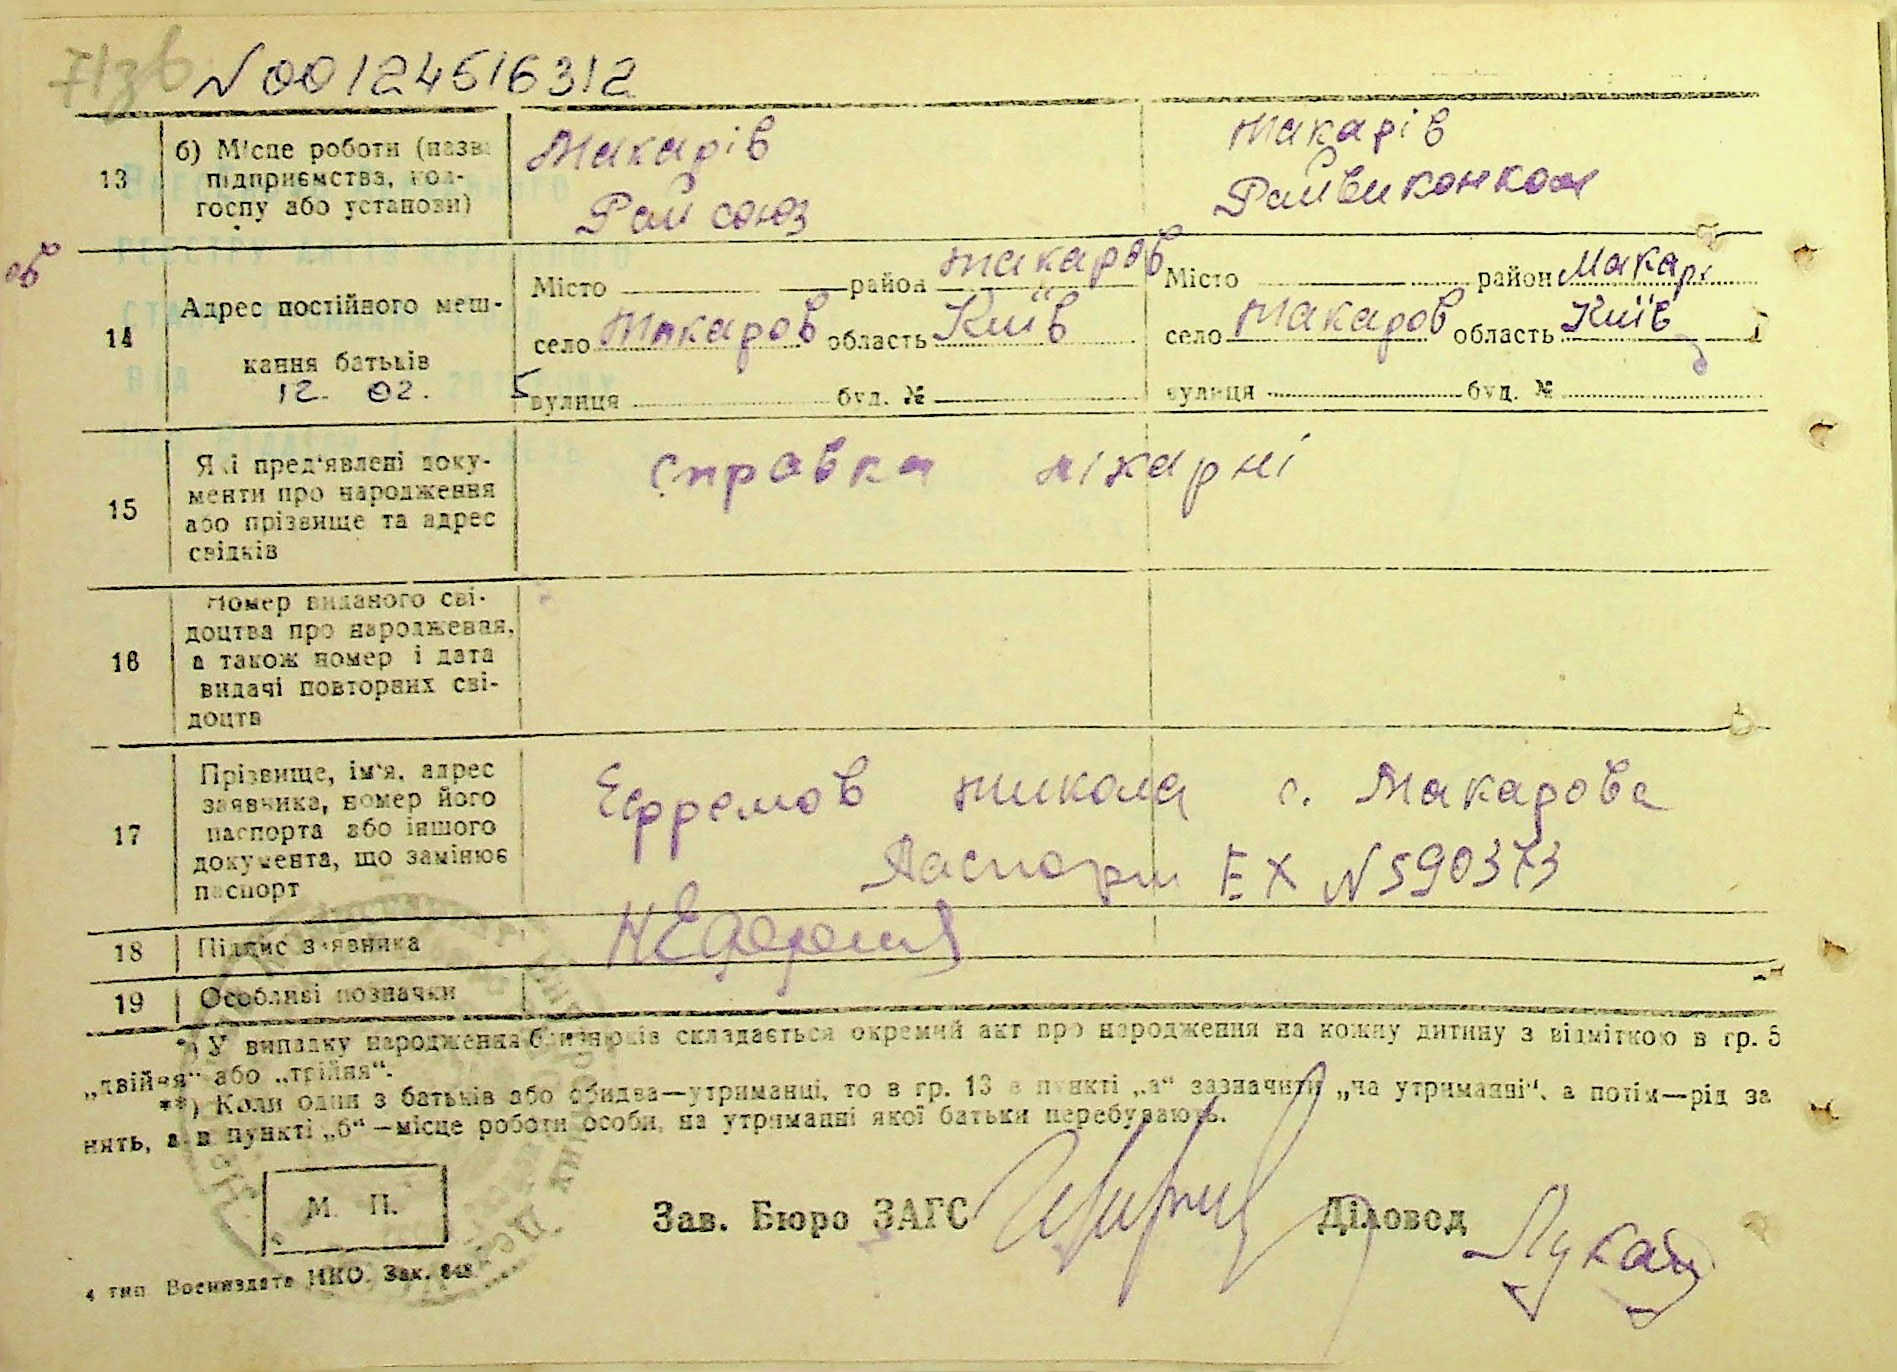 N 00124516312
13
б) Місце роботи (назва
підприємства, кол-
госпу або установи)
Макарів
Рай союз
Макарів
Райвиконком
14
Адрес постійного меш-
кання батьків
12. 02.
Місто район Макаров
село Макаров область Київ
вулиця буд. №
Місто район Макар
село Макаров область Київ
вулиця буд. №
15
Які пред'явлені доку-
менти про народження
або прізвище та адрес
свідків
Справка лікарні
16
Номер виданого сві-
доцтва про народження,
а також номер і дата
видачі повторних сві-
доцтв
17
Прізвище, ім'я, адрес
заявника, номер його
паспорта або іншого
документа, що замінює
паспорт
Ефремов Микола с. Макарова
Паспорт ЕХ N 590373
18
Підпис заявника
НЕфремов
19
Особливі позначки
*) У випадку народження близнюків складається окремий акт про народження на кожну дитину з відміткою в гр. 5
„двійня“ або „трійня“.
**) Коли один з батьків або обидва—утриманці, то в гр. 13 в пункті „а“ зазначити „на утриманні“, а потім—рід за
нять, а в пункті „б“—місце роботи особи, на утриманні якої батьки перебувають.
М. П.
Зав. Бюро ЗАГС
Діловод
4 тип Воениздата НКО. Зак. 848